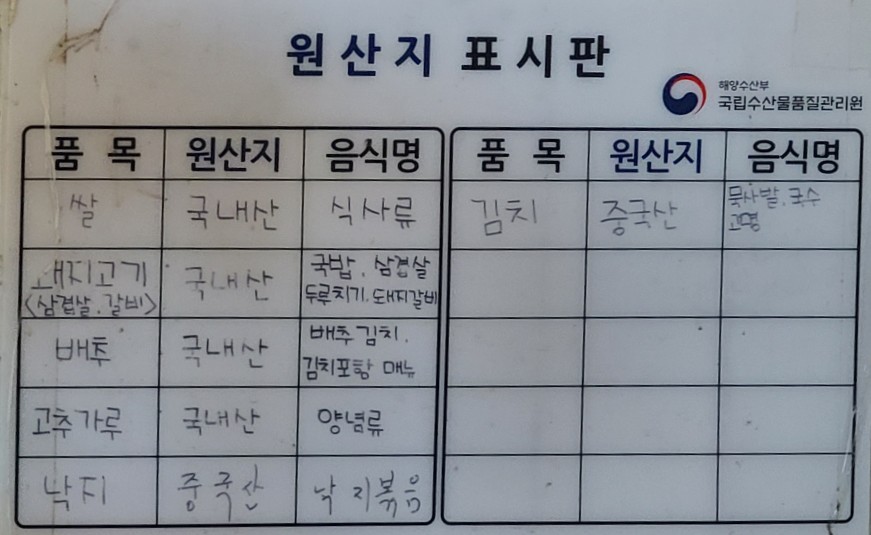 원산지 표시판
해양수산부
국립수산물품질관리원
품 목 원산지 음식명
쌀 국내산 식사류
돼지고기 국내산 국밥, 삼겹살
<삼겹살.갈비> 두루치기.돼지갈비
배추 국내산 배추김치,
김치포함 메뉴
고추가루 국내산 양념류
낙지 중국산 낙지볶음
품 목 원산지 음식명
김치 중국산 묵사발.국수
고명